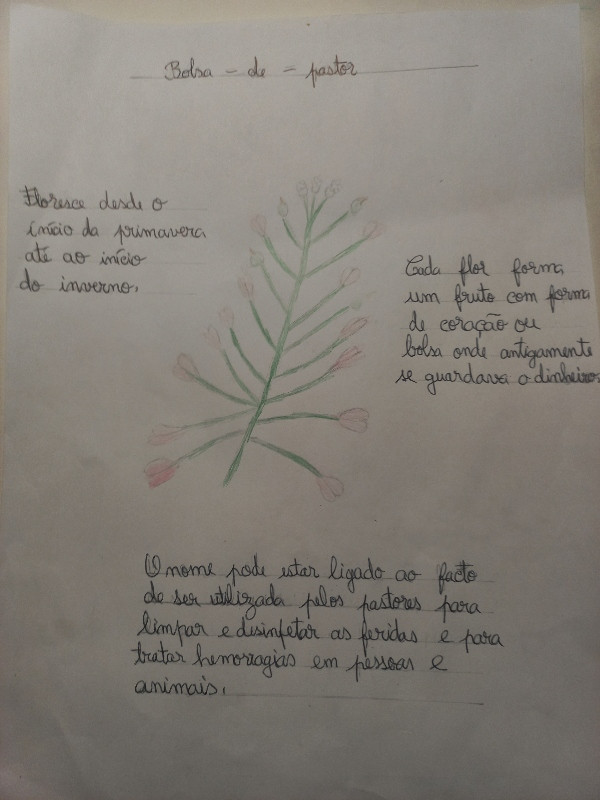 Bolsa - de - pastor
Floresce desde o
início da primavera
até ao início
do inverno.
Cada flor forma
um fruto com forma
de coração ou
bolsa onde antigamente
se guardava o dinheiro.
O nome pode estar ligado ao facto
de ser utilizada pelos pastores para
limpar e disinfetar as feridas e para
tratar hemorragias em pessoas e
animais.